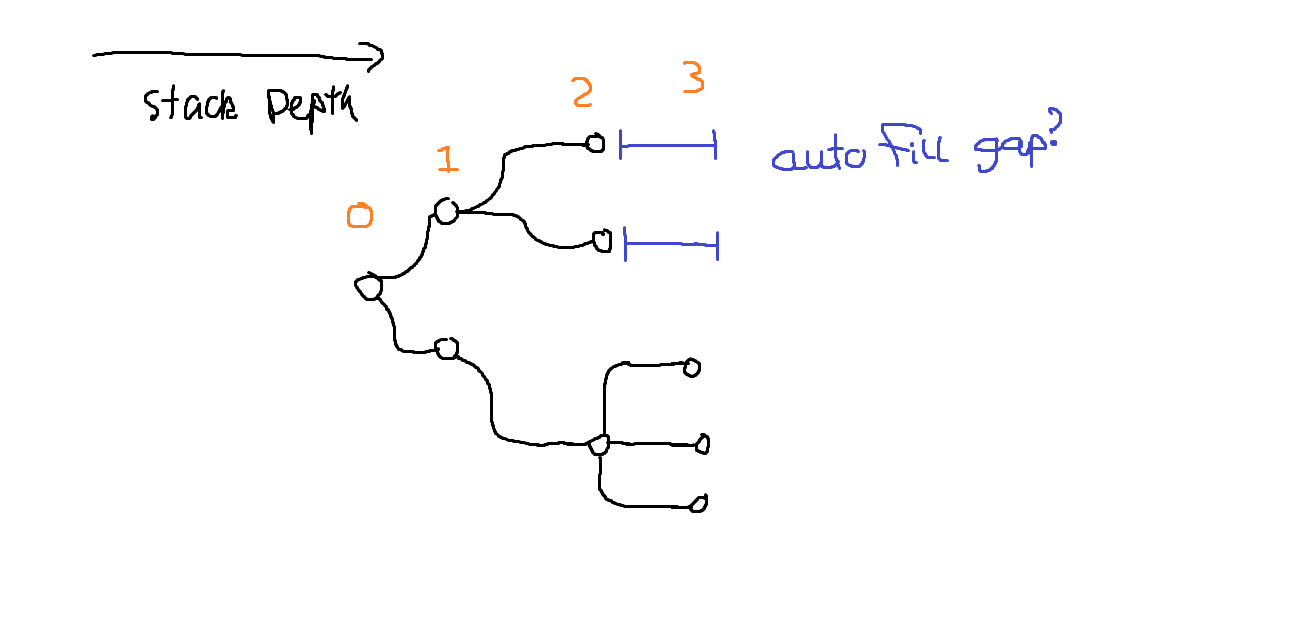 Stack Depth
0
1
2
3
auto fill gap?